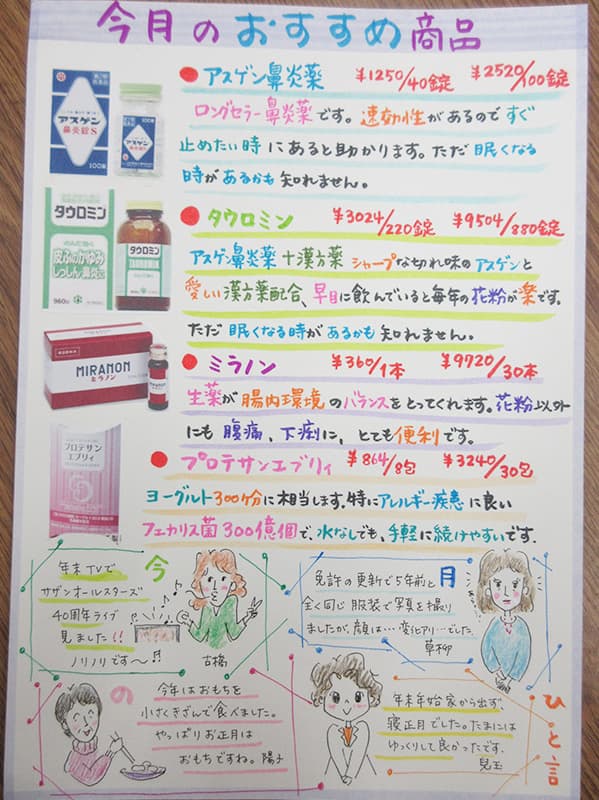 今月のおすすめ商品
アスゲン鼻炎薬 ¥1250/40錠 ¥2520/100錠
ロングセラー鼻炎薬です。速効性があるのですぐ
止めたい時にあると助かります。ただ眠くなる
時があるかも知れません。
アスゲン
鼻炎錠S
100錠
アスゲン
タウロミン ¥3024/220錠 ¥9504/880錠
アスゲン鼻炎薬+漢方薬 シャープな切れ味のアスゲンと
愛しい漢方薬配合、早目に飲んでいると毎年の花粉が楽です。
ただ眠くなる時があるかも知れません。
タウロミン
皮ふのかゆみ
しっしん・鼻炎に
960錠
タウロミン
ミラノン ¥360/1本 ¥9720/30本
生薬が腸内環境のバランスをとってくれます。花粉以外
にも腹痛、下痢に、とても便利です。
MIRANON
ミラノン
プロテサンエブリィ ¥864/8包 ¥3240/30包
ヨーグルト300ケ分に相当します。特にアレルギー疾患に良い
フェカリス菌300億個で、水なしでも、手軽に続けやすいです。
プロテサン
エブリィ
今月のひと言
年末TVで
サザンオールスターズ
40周年ライブ
見ました!!
ノリノリです〜♬
古橋
免許の更新で5年前と
全く同じ服装で写真を撮り
ましたが、顔は…変化アリ…でした。
草柳
今年はおもちを
小さくきざんで食べました。
やっぱりお正月は
おもちですね。陽子
年末年始家から出ず、
寝正月でした。たまには
ゆっくりして良かったです。
児玉